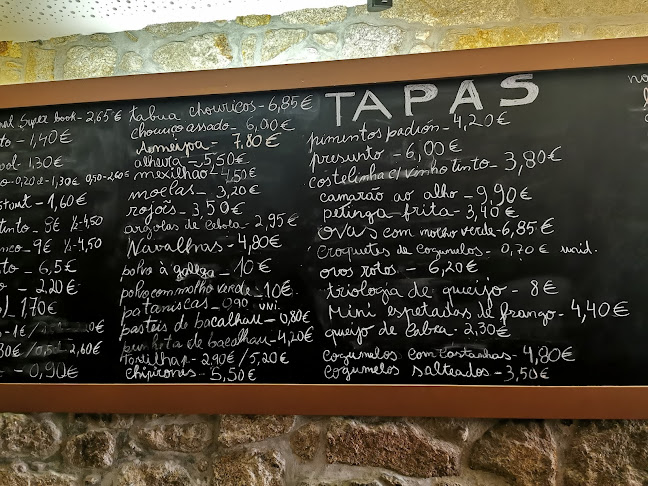 Super Bock - 2,65 €
- 1,40€
1,30€
0,20 - 1,30€ 0,50 - 2,60€
- 1,60€
tinto - 9€ ½ - 4,50
- 9€ ½ - 4,50
- 6,5€
- 2,20€
1,70€
- 1€ /
2,60€
- 0,90€
tabua chouriços - 6,85€
chouriço assado - 6,00€
- 7,80€
alheira - 5,50€
mexilhão - 4,50€
moelas - 3,20€
rojões - 3,50€
argolas de cebola - 2,95€
Navalhas - 4,80€
polvo à galega - 10€
polvo com molho verde - 10€
pataniscas - 0,90 uni.
pasteis de bacalhau - 0,80€
punheta de bacalhau - 4,20€
tortilhas - 2,90€ / 5,20€
chipirones - 5,50€
TAPAS
pimentos padrón - 4,20€
presunto - 6,00€
costelinha c/ vinho tinto - 3,80€
camarão ao alho - 9,90€
petinga frita - 3,40€
ovas com molho verde - 6,85€
croquetes de cogumelos - 0,70€ unid.
ovos rotos - 6,20€
triologia de queijo - 8€
Mini espetadas de frango - 4,40€
queijo de cabra - 2,30€
cogumelos com castanhas - 4,80€
cogumelos salteados - 3,50€